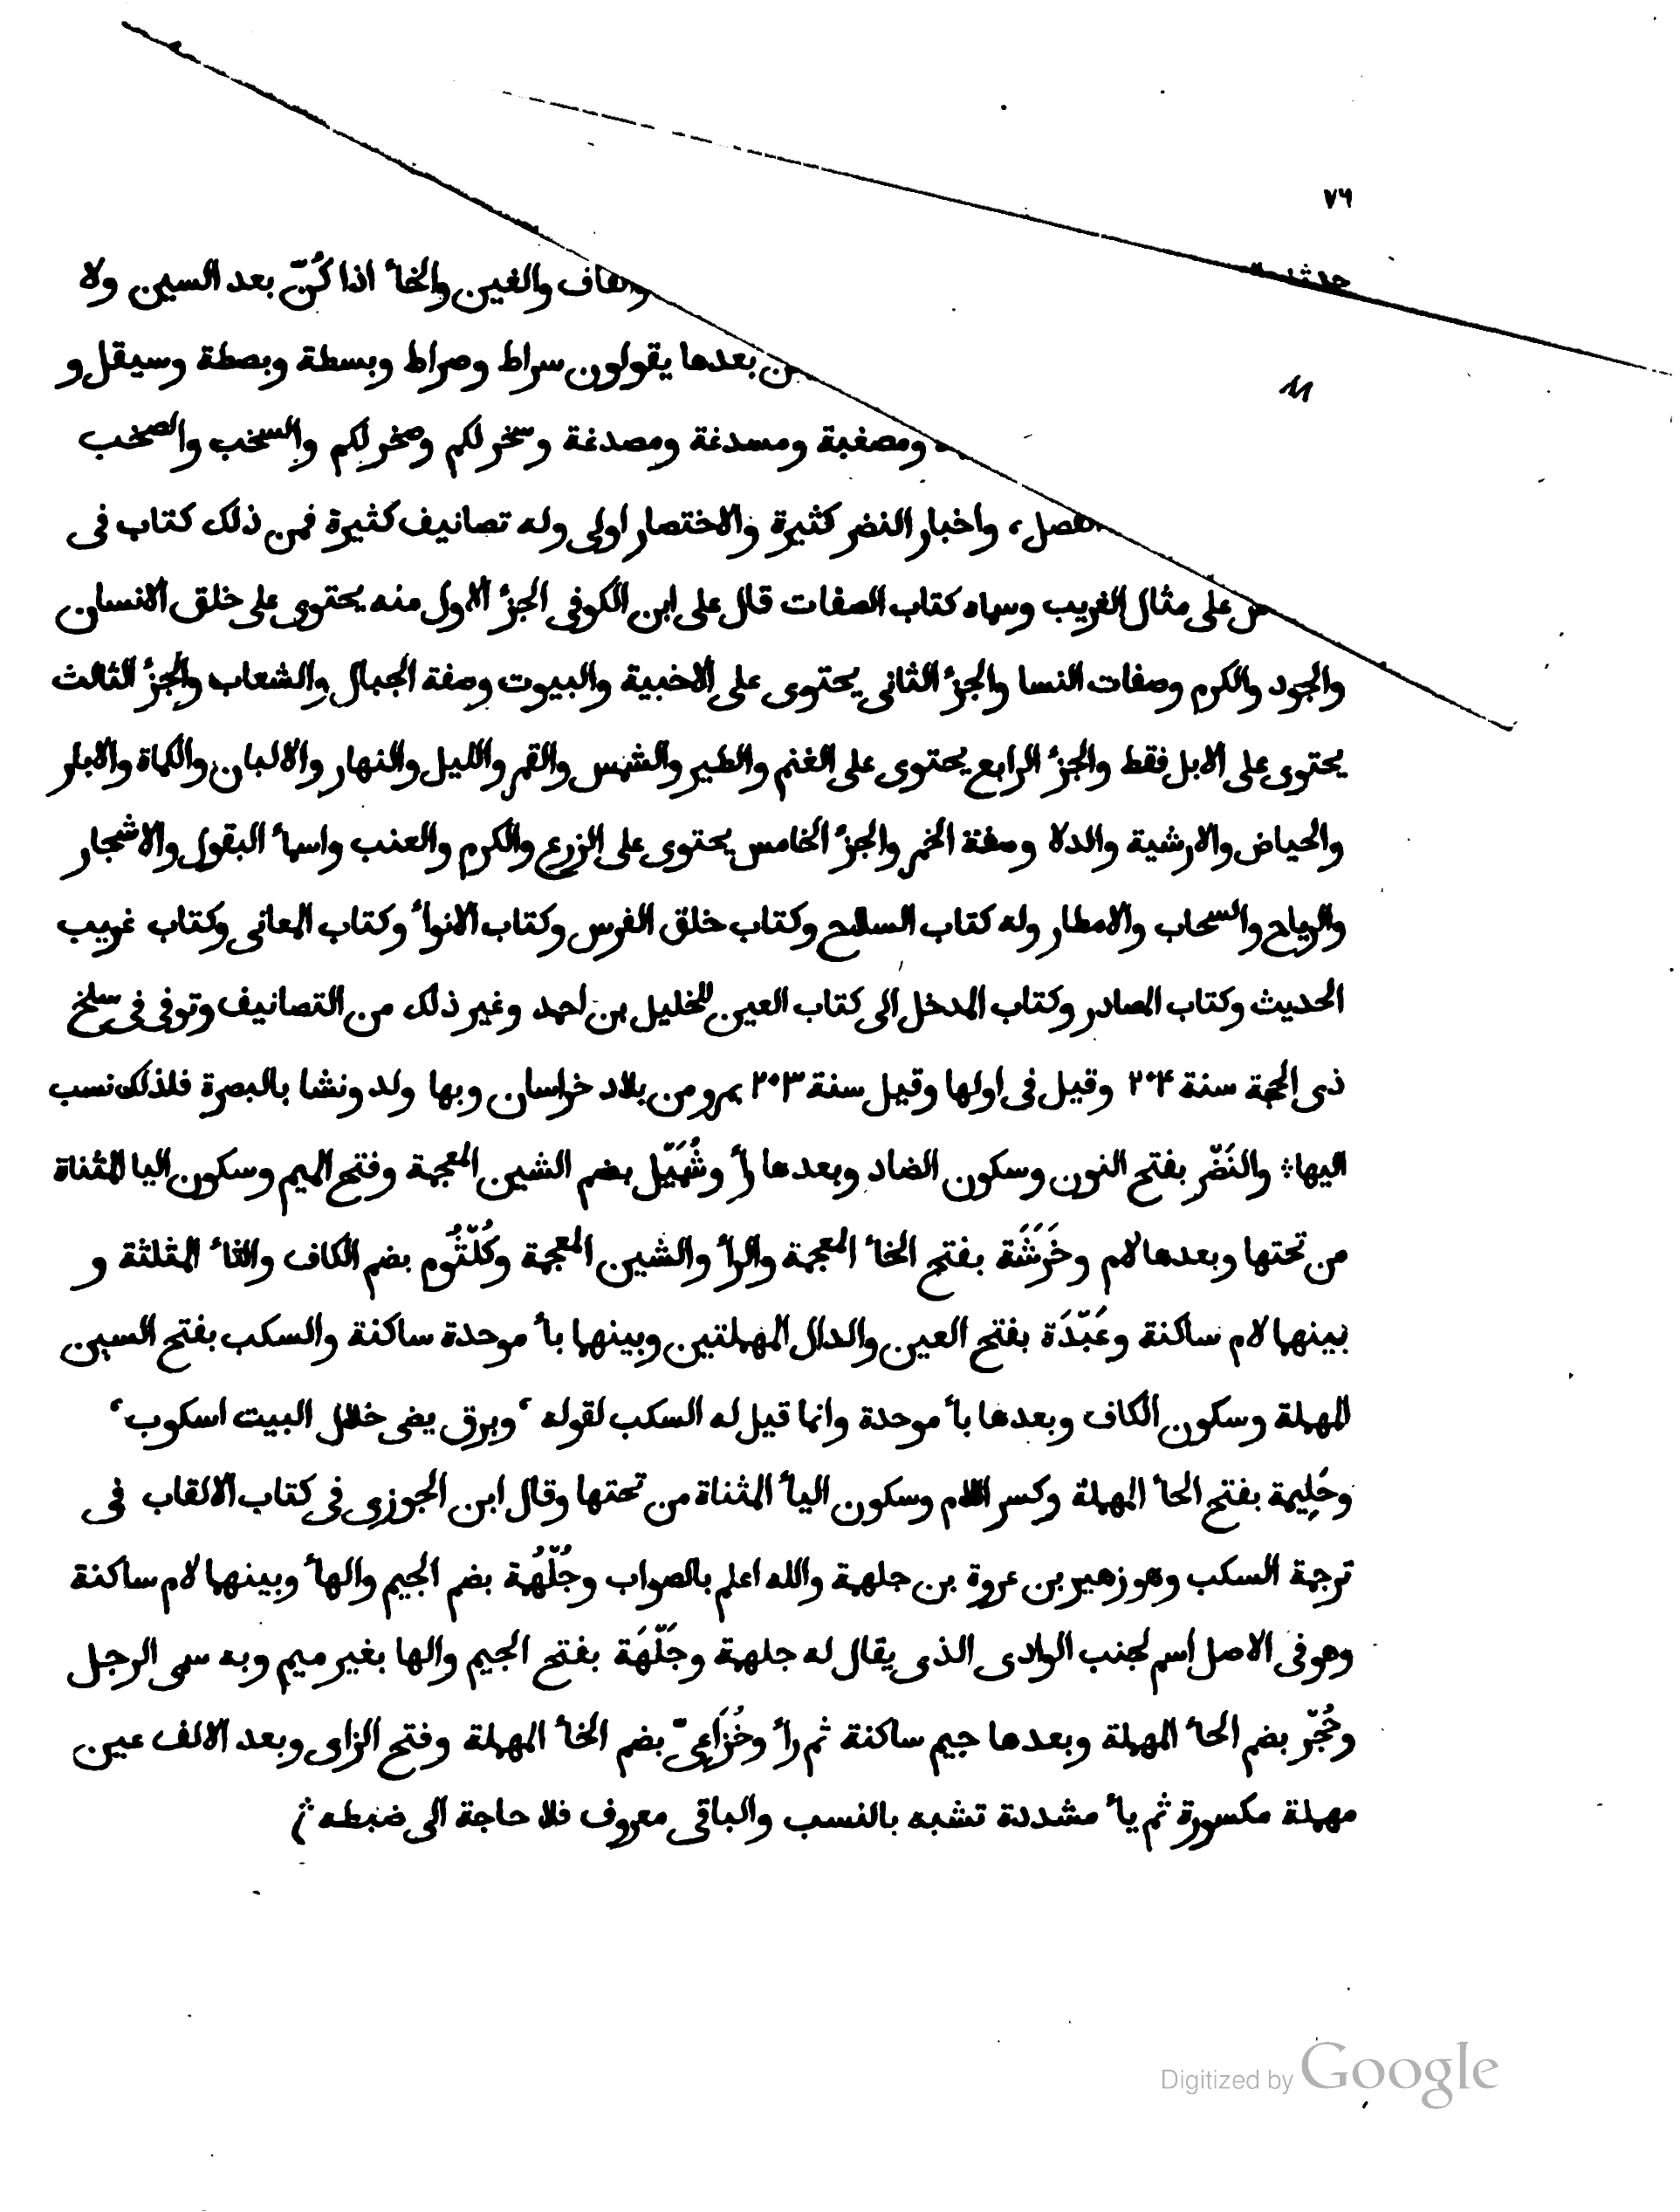 ٧٦
والقاف والغين والخأ اذا كُنّ بعد السين ولا
بعدها يقولون سراط وصراط وبسطة وبصطة وسيقل و
ومصغبة ومسدغة ومصدغة وسخر لكم وصخر لكم والسخب والصخب
واخبار النضر كثيرة والاختصار اولى وله تصانيف كثيرة فمن ذلك كتاب فى
على مثال الغريب وسماه كتاب الصفات قال على ابن الكوفى الجزٔ الاول منه يحتوى على خلق الانسان
والجود والكرم وصفات النسا والجزٔ الثانى يحتوى على الاخبية والبيوت وصفة الجبال والشعاب والجزٔ الثالث
يحتوى على الابل فقط والجزٔ الرابع يحتوى على الغنم والطير والشمس والقمر والليل والنهار والالبان والكماة والابار
والحياض والارشية والدلا وصفة الخمر والجزٔ الخامس يحتوى على الزرع والكرم والعنب واسمأ البقول والاشجار
والرياح والسحاب والامطار وله كتاب السلاح وكتاب خلق الفرس وكتاب الانوأ وكتاب المعانى وكتاب غريب
الحديث وكتاب المصادر وكتاب المدخل الى كتاب العين للخليل بن احمد وغير ذلك من التصانيف وتوفى فى سلخ
ذى الحجة سنة ٢٠٤ وقيل فى اولها وقيل سنة ٢٠٣ بمرو من بلاد خراسان وبها ولد ونشا بالبصرة فلذلك نسب
اليها ؛ والنَضْر بفتح النون وسكون الضاد وبعدها رأ وشُمَيْل بضم الشين المعجمة وفتح الميم وسكون اليا المثناة
من تحتها وبعدها لام وخَرَشَة بفتح الخأ المعجمة والرأ والشين المعجمة وكُلْثُوم بضم الكاف والثأ المثلثة و
بينهما لام ساكنة وعَبْدَة بفتح العين والدال المهملتين وبينهما بأ موحدة ساكنة والسكب بفتح السين
المهملة وسكون الكاف وبعدها بأ موحدة وانما قيل له السكب لقوله ‘ وبرق يضى خلال البيت اسكوب ‘
وحَلِيمة بفتح الحأ المهملة وكسر اللام وسكون اليأ المثناة من تحتها وقال ابن الجوزى فى كتاب الالقاب فى
ترجمة السكب وهو زهير بن عروة بن جلهمة والله اعلم بالصواب وجُلْهُمة بضم الجيم والهأ وبينهما لام ساكنة
وهو فى الاصل اسم لجنب الوادى الذى يقال له جلهمة وجَلْهَة بفتح الجيم والها بغير ميم وبه سمى الرجل
وحُجْر بضم الحأ المهملة وبعدها جيم ساكنة ثم رأ وخُزَاعِىّ بضم الخأ المهملة وفتح الزاى وبعد الالف عين
مهملة مكسورة ثم يأ مشددة تشبه بالنسب والباقى معروف فلا حاجة الى ضبطه ؛
Digitized by Google